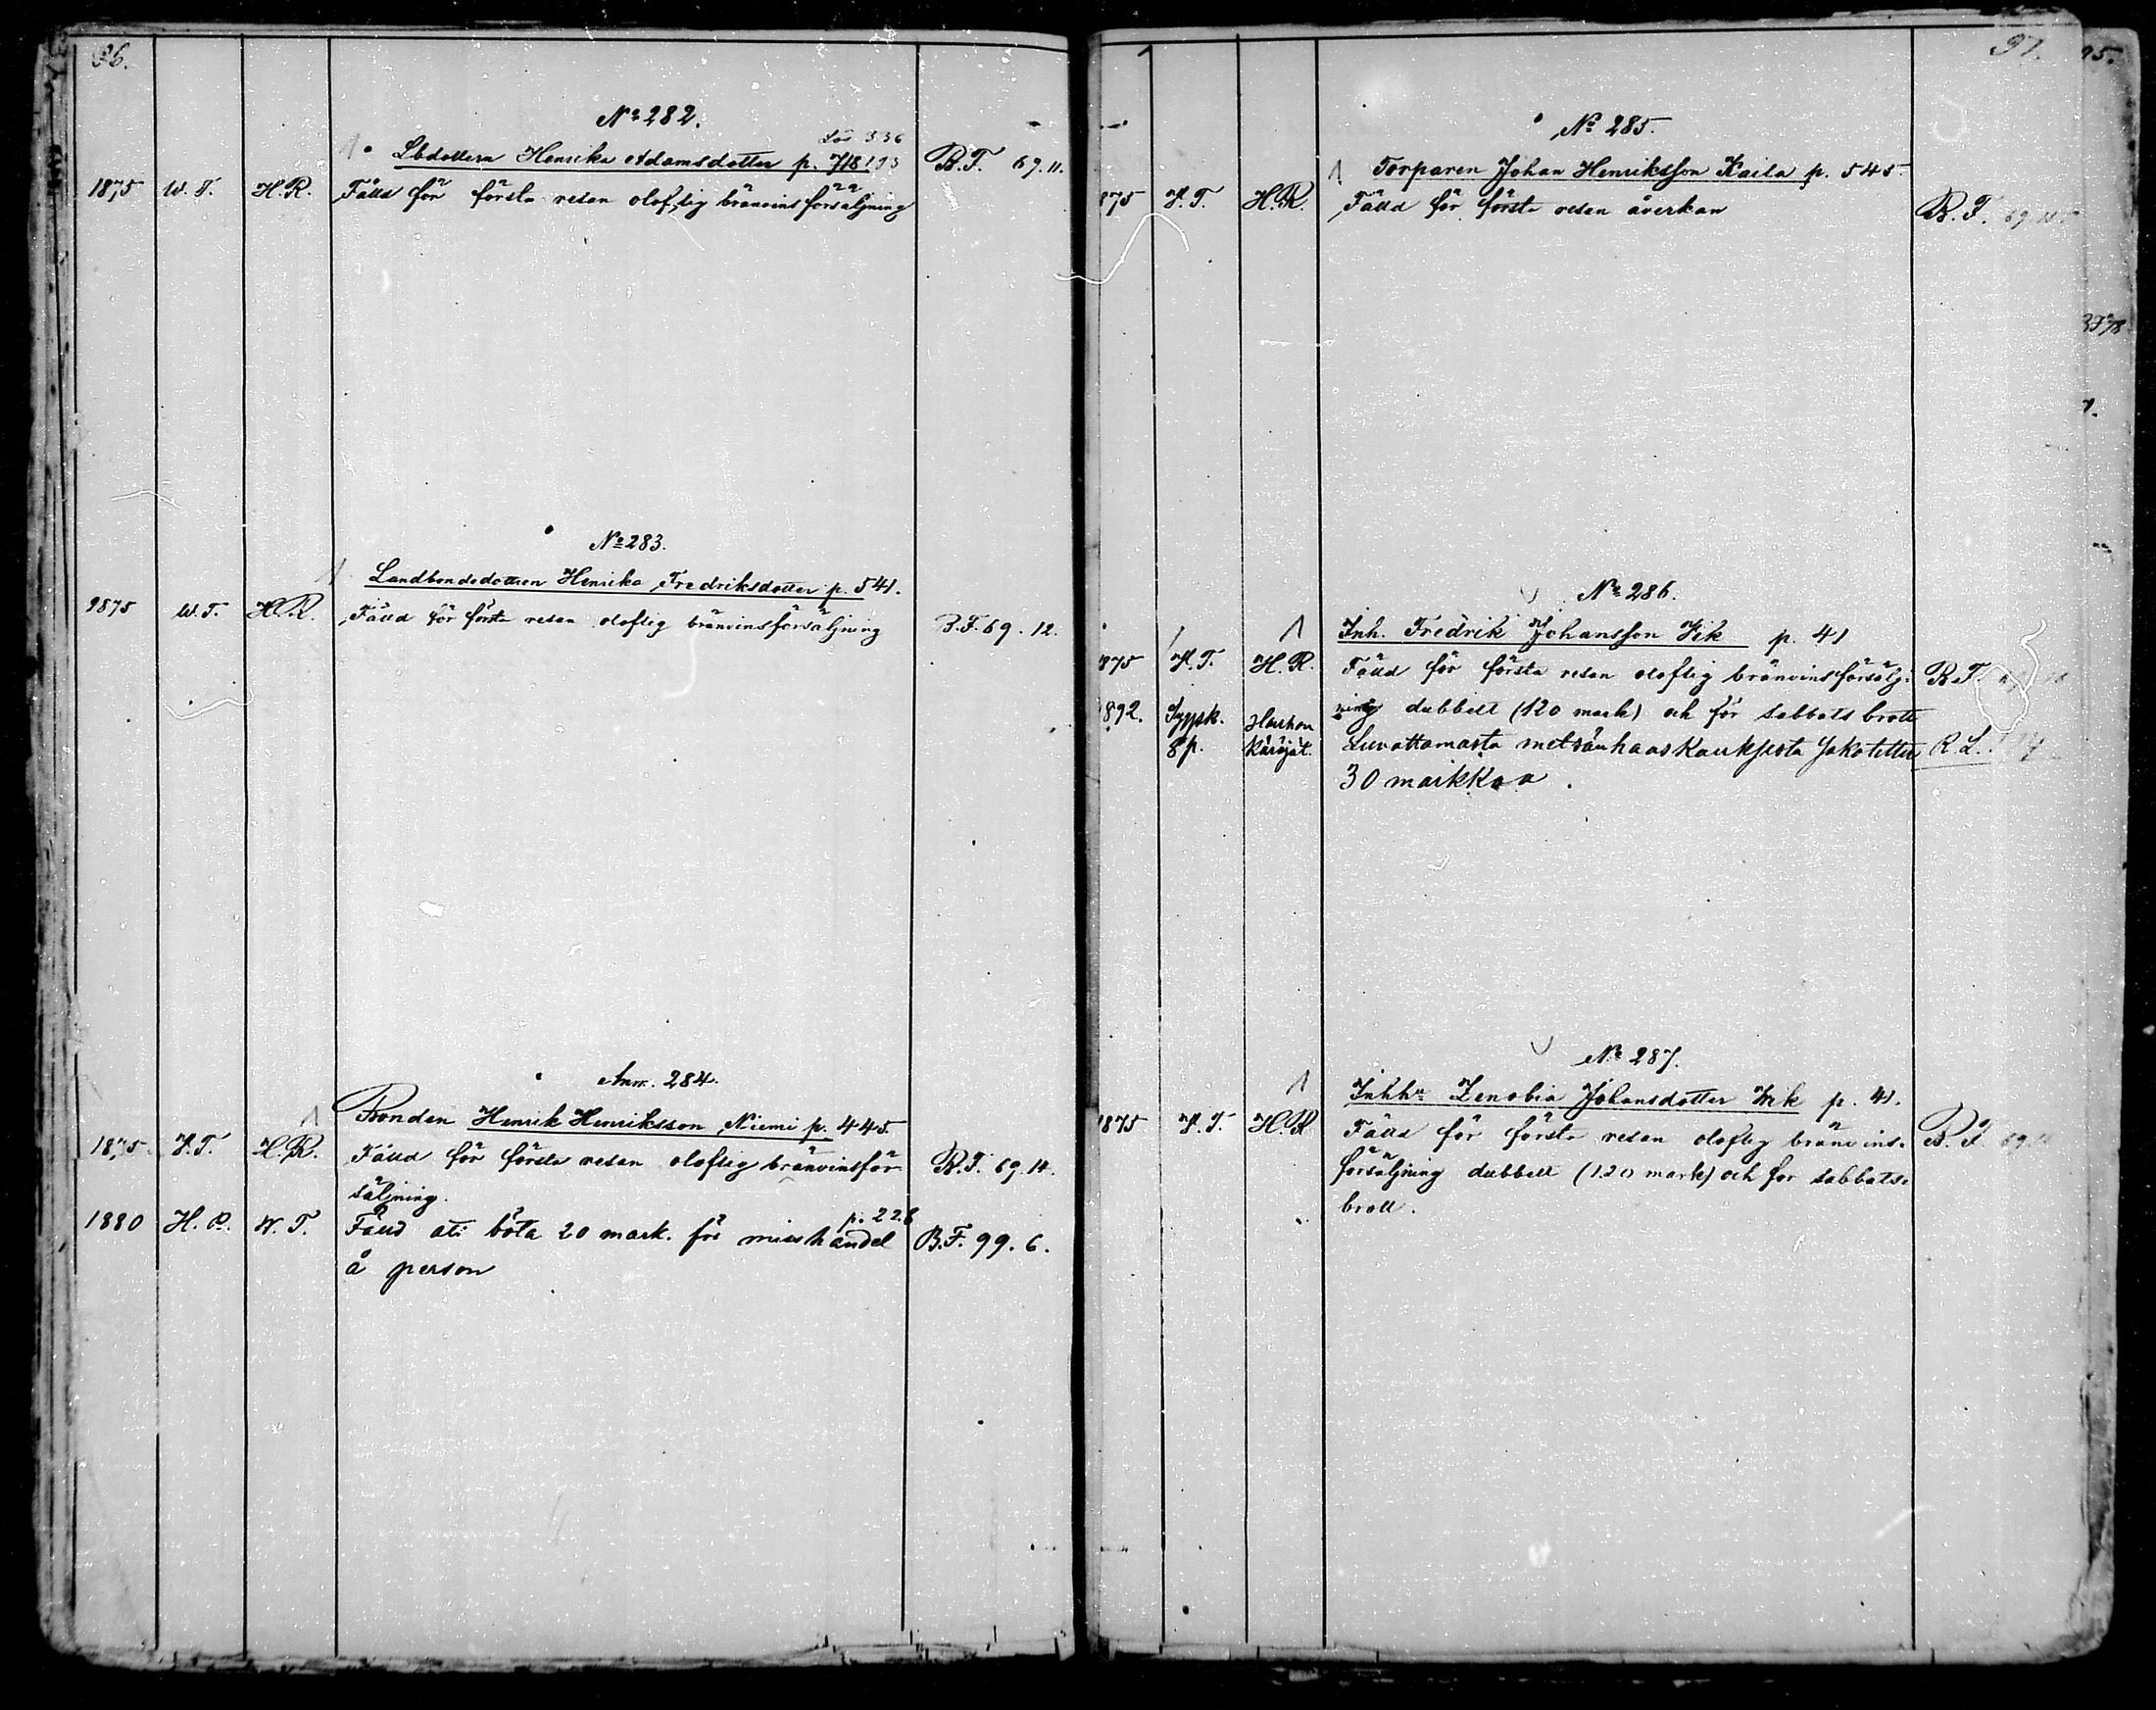 96.
No 282.
336
Lbdottern Henrika Adamsdotter p. 718.
B. F. 69. 11.
1875 W. T. H. R. Fälld för första resan oloflig bränvinsförsäljning
No 283.
Landbondedottern Henrika Fredriksdotter p. 541.
1875 W. T. H. R. Fälld för första resan oloflig bränvinsförsäljning B. F. 69. 12.
Anm. 284.
Bonden Henrik Henriksson Niemi p. 445.
1875. H. R. Fälld för första resan oloflig bränvinsför B. F. 69. 14.
säljning.
p. 226
1880 H. R. W. T. Fälld att böta 20 mark. för misshandel B. F. 99. 6.
å person
97. 95.
No 285.
Torparen Johan Henriksson Kaila p. 545
875 H. R. Fälld för första resan åverkan B. F. 69.
No 286.
Inh. Fredrik Johansson Wik p. 41
875 H. R. Fälld för första resan oloflig bränvinsförsälj- B. F.
892. Syysk. ning dubbelt (120 mark) och för sabbats brott
8 p. käräjät. Luvattamasta metsänhaaskauksesta sakotettu R. L.
30 markkaa.
No 287.
Inhhn Zenobia Johansdotter Wik p. 41.
1875 H. R. Fälld för första resan oloflig bränvins- B. F. 69.
försäljning dubbelt (120 mark) och för sabbats-
brott.